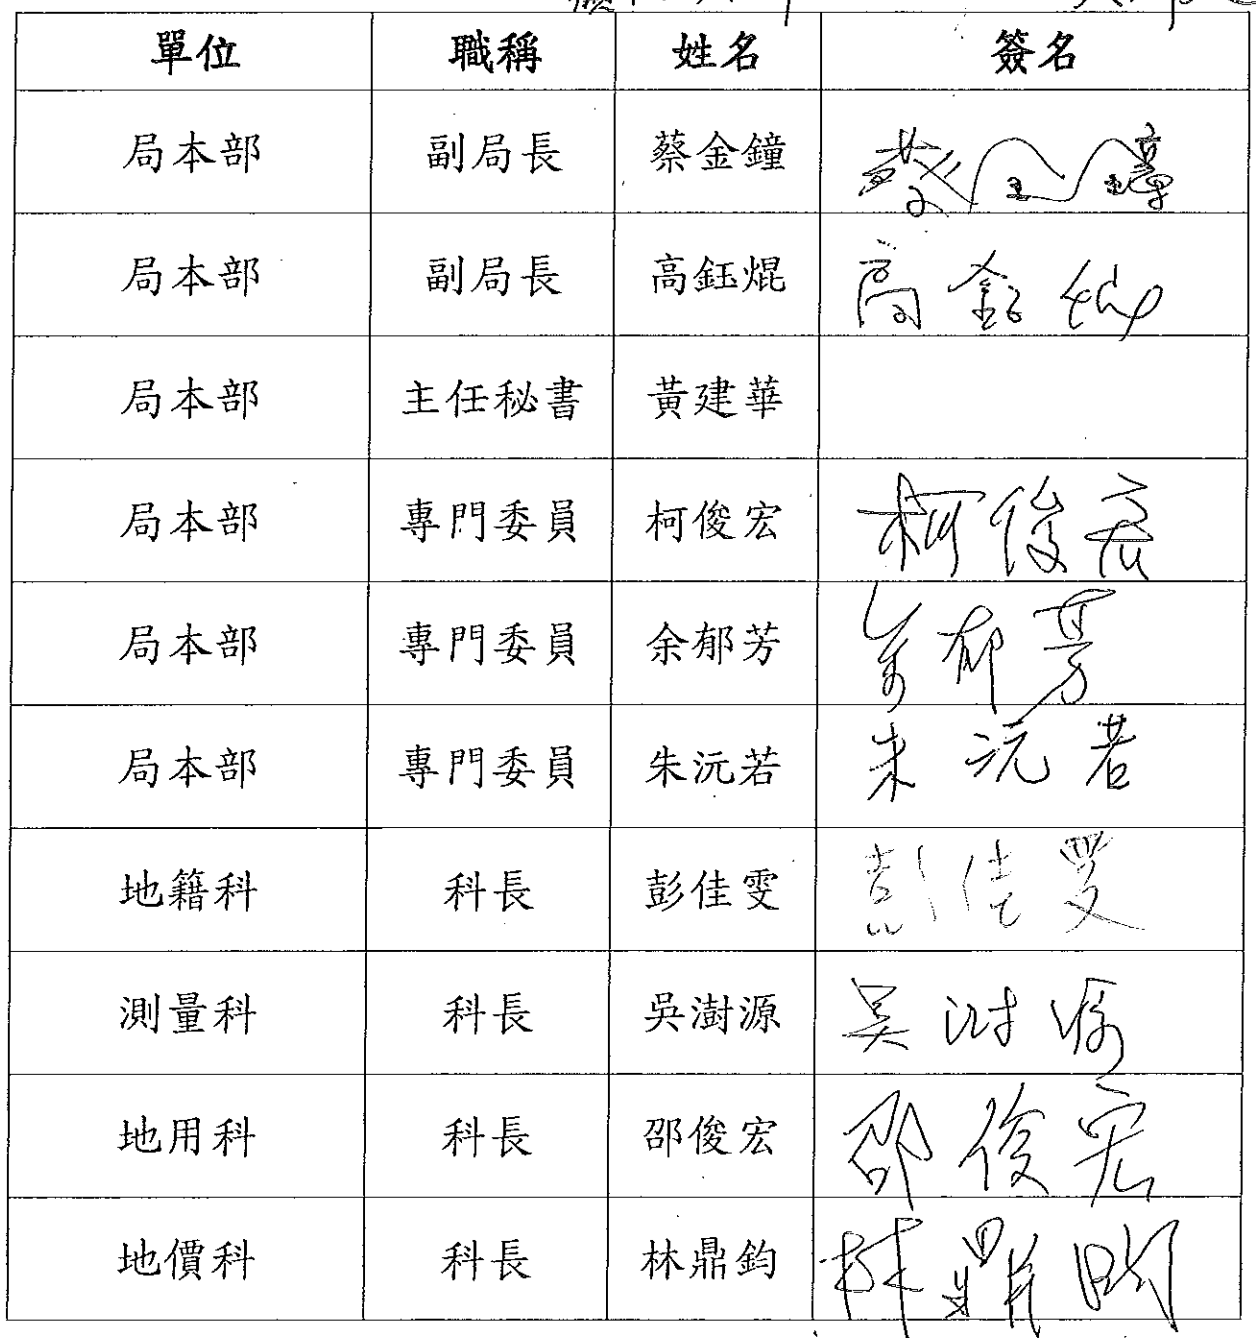 單位 職稱 姓名 簽名
局本部 副局長 蔡金鐘 蔡金鐘
局本部 副局長 高鈺焜 高鈺焜
局本部 主任秘書 黃建華
局本部 專門委員 柯俊宏 柯俊宏
局本部 專門委員 余郁芳 余郁芳
局本部 專門委員 朱沅若 朱沅若
地籍科 科長 彭佳雯 彭佳雯
測量科 科長 吳澍源 吳澍源
地用科 科長 邵俊宏 邵俊宏
地價科 科長 林鼎鈞 林鼎鈞